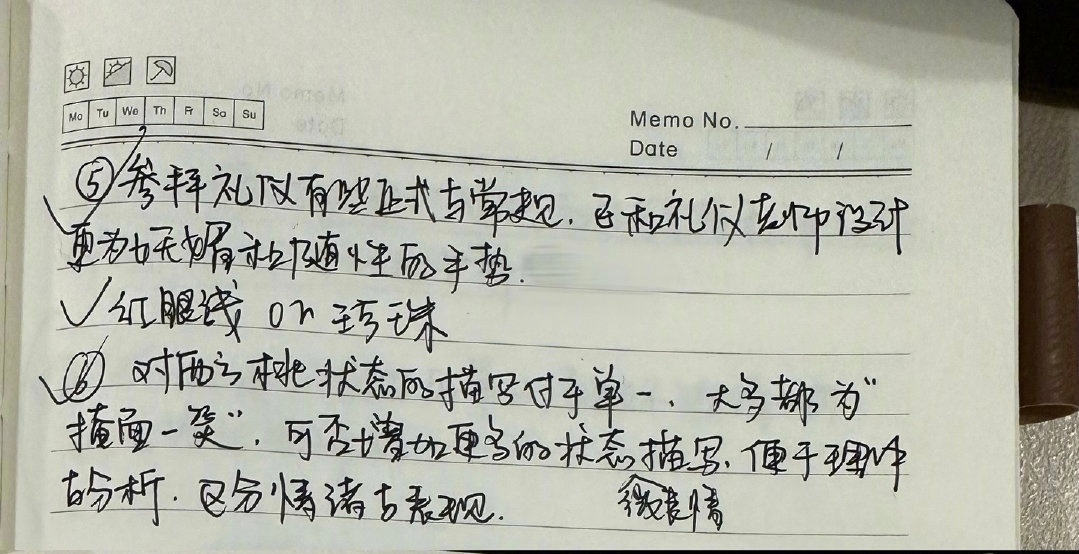 Mo Tu We Th Fr Sa Su
Memo No.
Date / /
⑤参拜礼仪有些正式与常规，已和礼仪老师设计
更为妩媚和随性的手势.
✓红眼线 or 珍珠
⑥ 对雨云桃状态的描写过于单一，大多都为“
掩面一笑”，可否增加更多的状态描写，便于理解
与分析，区分情绪与表现.
微表情